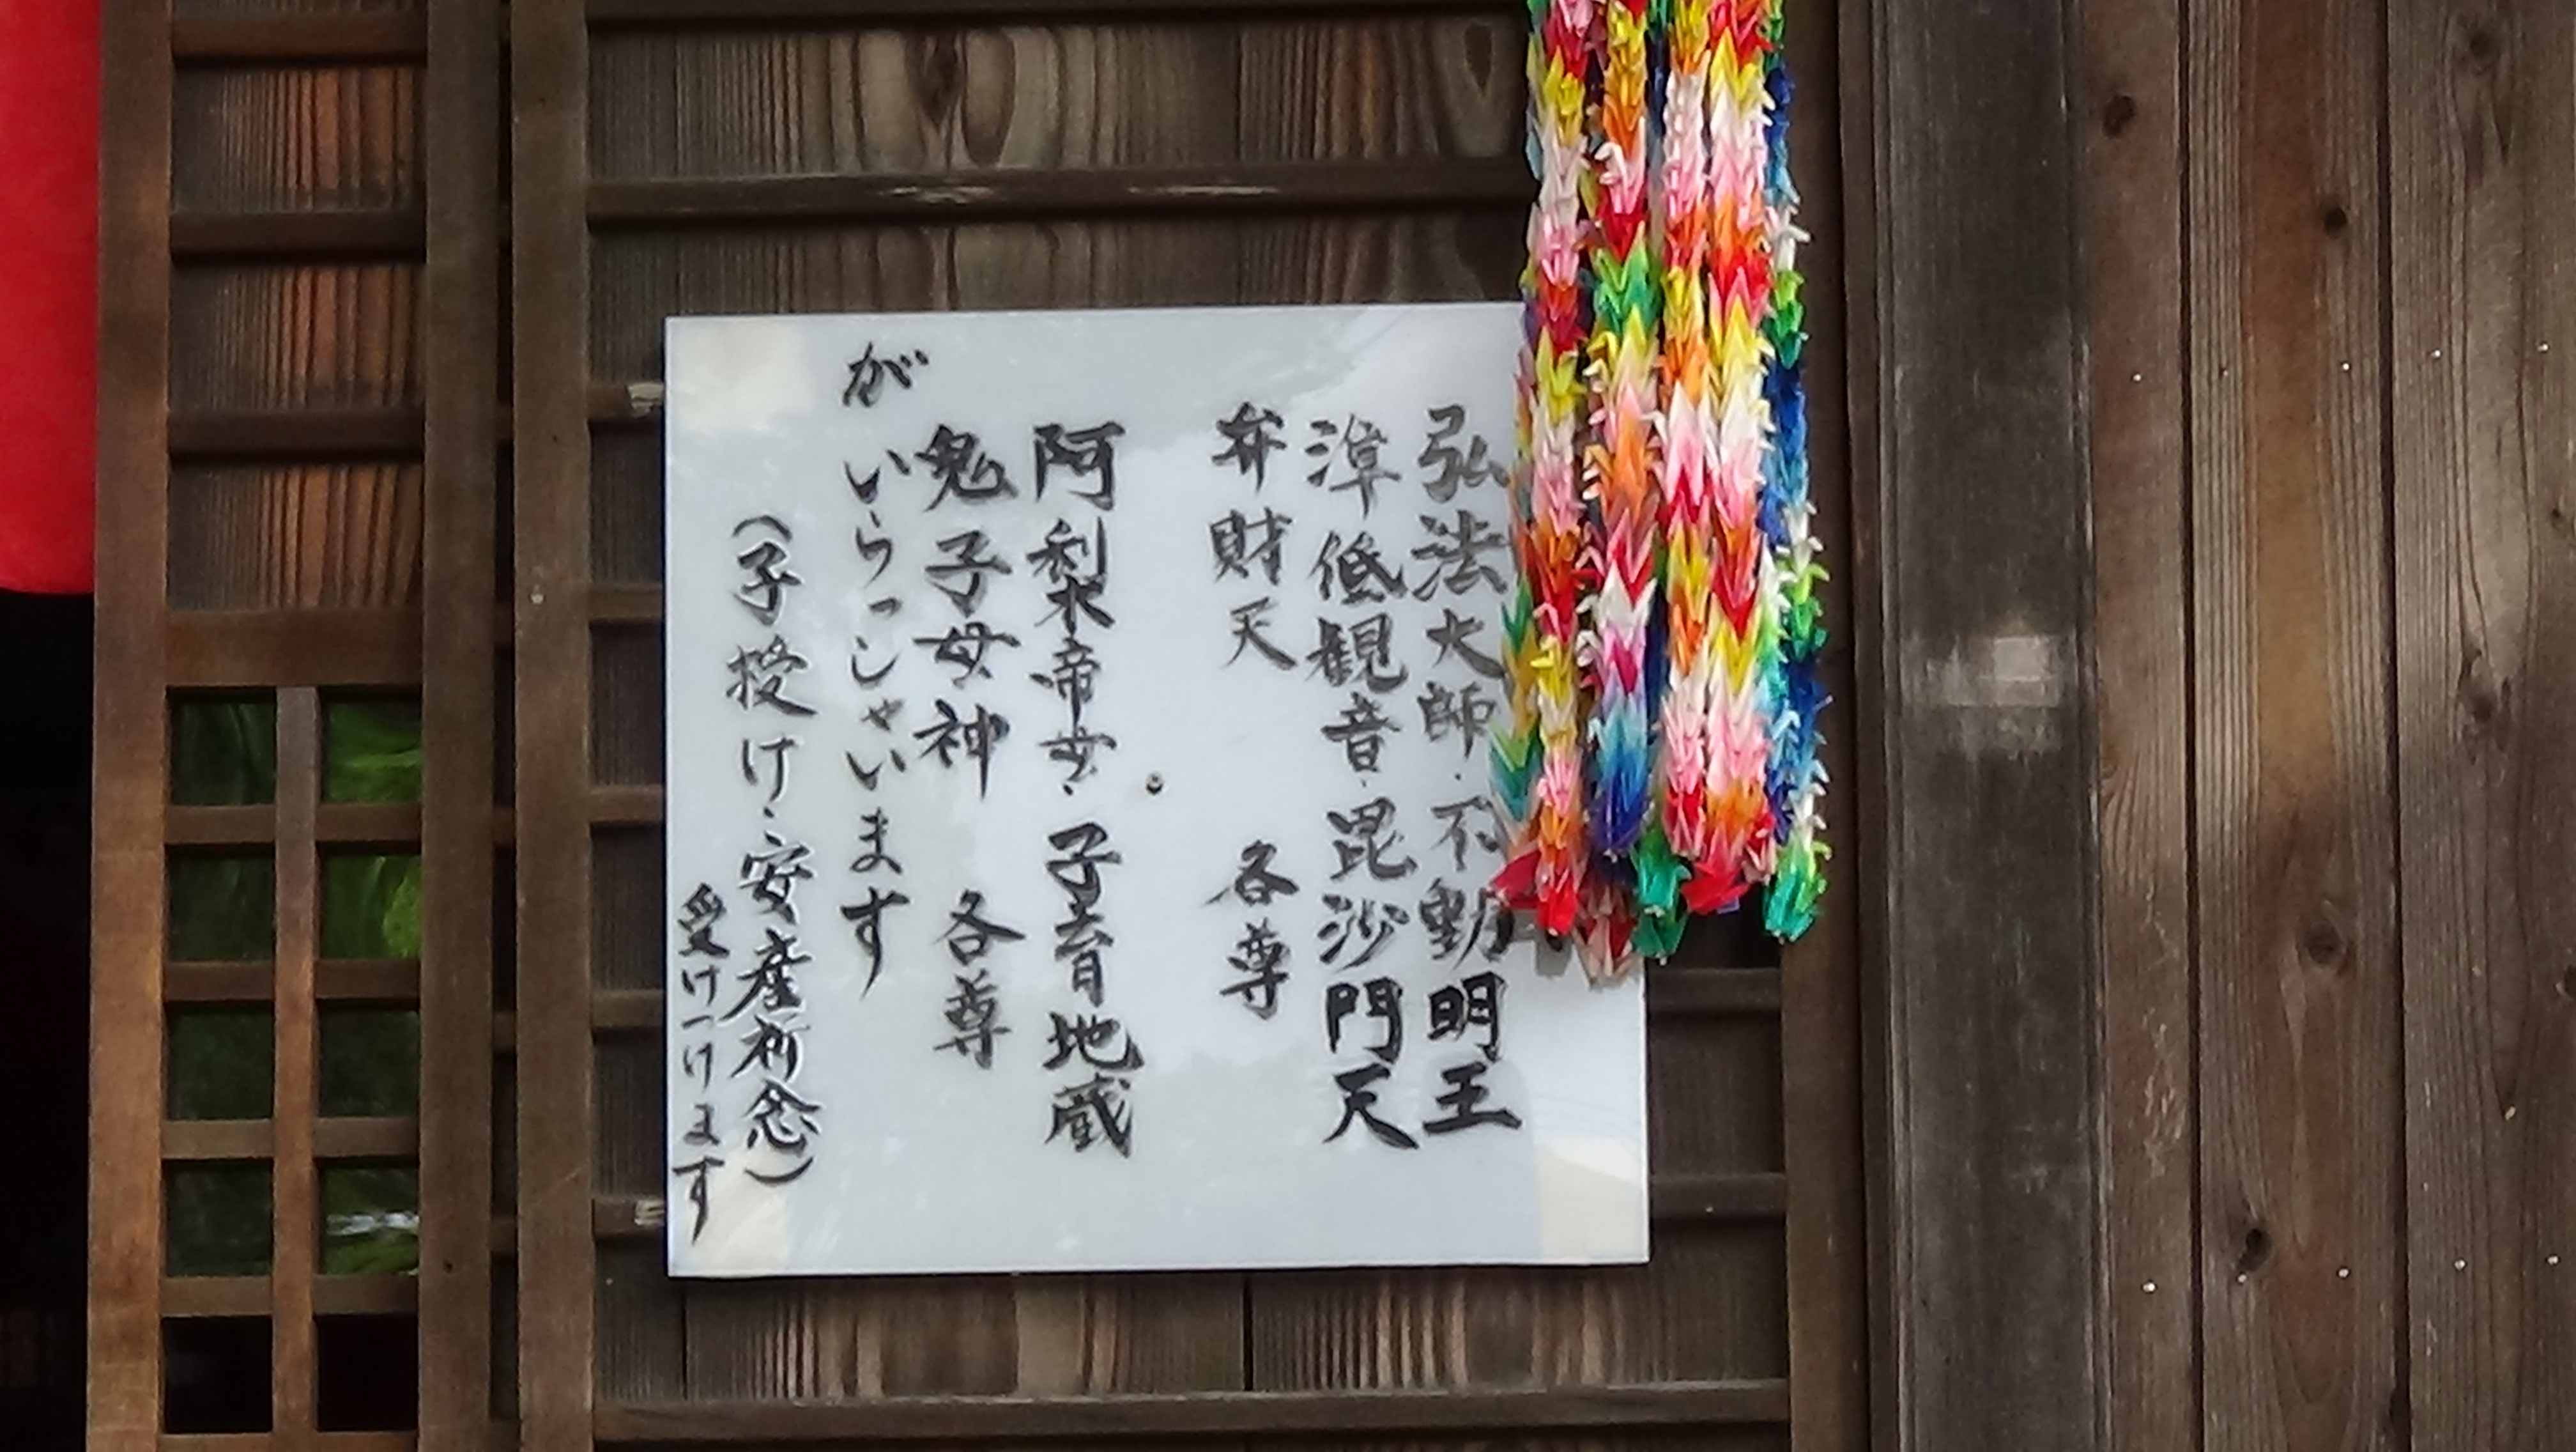 弘法大師・不動明王
準低観音・毘沙門天
弁財天 各尊
阿梨帝母・子育地蔵
鬼子母神 各尊
が いらっしゃいます
(子授け・安産祈念)
受けつけます